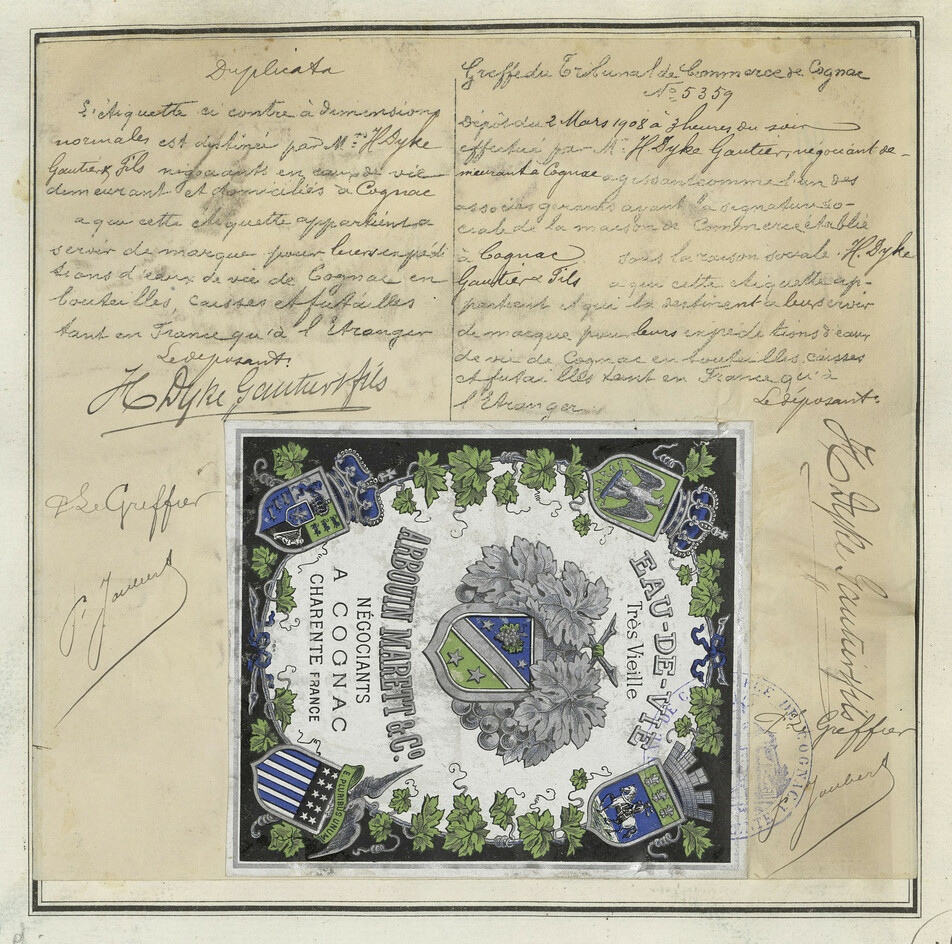 Duplicata
L'étiquette ci contre à dimensions
normales est destinée par Mrs H Dyke
Gautier & Fils négociants en eaux de vie
demeurant et domiciliés à Cognac
a que cette étiquette appartient a
servir de marque pour leurs expédi
tions d'eaux de vie de Cognac en
bouteilles, caisses et futailles
tant en France qu'à l'étranger
Le déposant:
H Dyke Gautier & fils
Le Greffier
Joubert
Greffe du Tribunal de Commerce de Cognac
No 5359
Dépôt du 2 Mars 1908 à 3 heures du soir
effectué par Mr H. Dyke Gautier, négociant de-
meurant à Cognac agissant comme l'un des
associés gerants ayant la signature so-
ciale de la maison de Commerce établie
à Cognac sous la raison sociale H. Dyke
Gautier & Fils a que cette étiquette ap-
partient et qui la destinent a leur servir
de marque pour leurs expéditions d'eaux
de vie de Cognac en bouteilles, caisses
et futailles tant en France qu'à
l'Etranger
Le déposant:
H Dyke Gautier & fils
Le Greffier
Joubert
EAU-DE-VIE
Très Vieille
ARBOUIN MARETT & Co.
NÉGOCIANTS
A COGNAC
CHARENTE FRANCE
E PLURIBUS UNUM